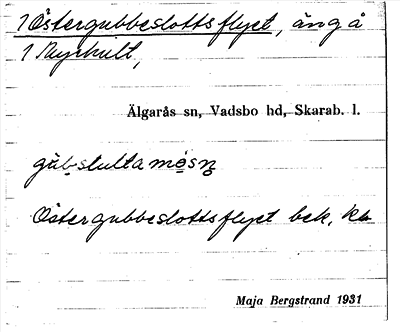 1 Östergubbeslottsflyet, äng å
1 Myrhult,
Älgarås sn, Vadsbo hd, Skarab. l.
gu̇bslȯtta mȯsn̥
Östergubbeslottsflyet bek. kb
Maja Bergstrand 1931